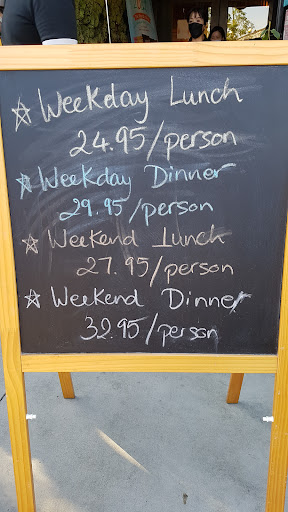 ☆ Weekday Lunch
24.95/person
☆ Weekday Dinner
29.95/person
☆ Weekend Lunch
27.95/person
☆ Weekend Dinner
32.95/person